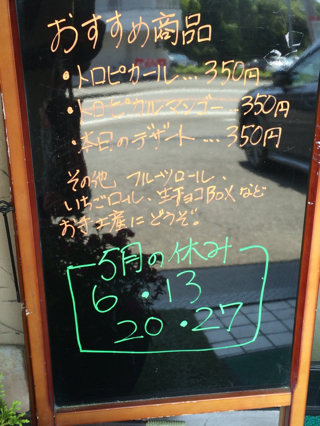 おすすめ商品
・トロピカール…350円
・トロピカルマンゴー…350円
・本日のデザート…350円
その他 フルーツロール、
いちごロール、生チョコBOXなど
お手土産にどうぞ。
5月の休み
6・13
20・27